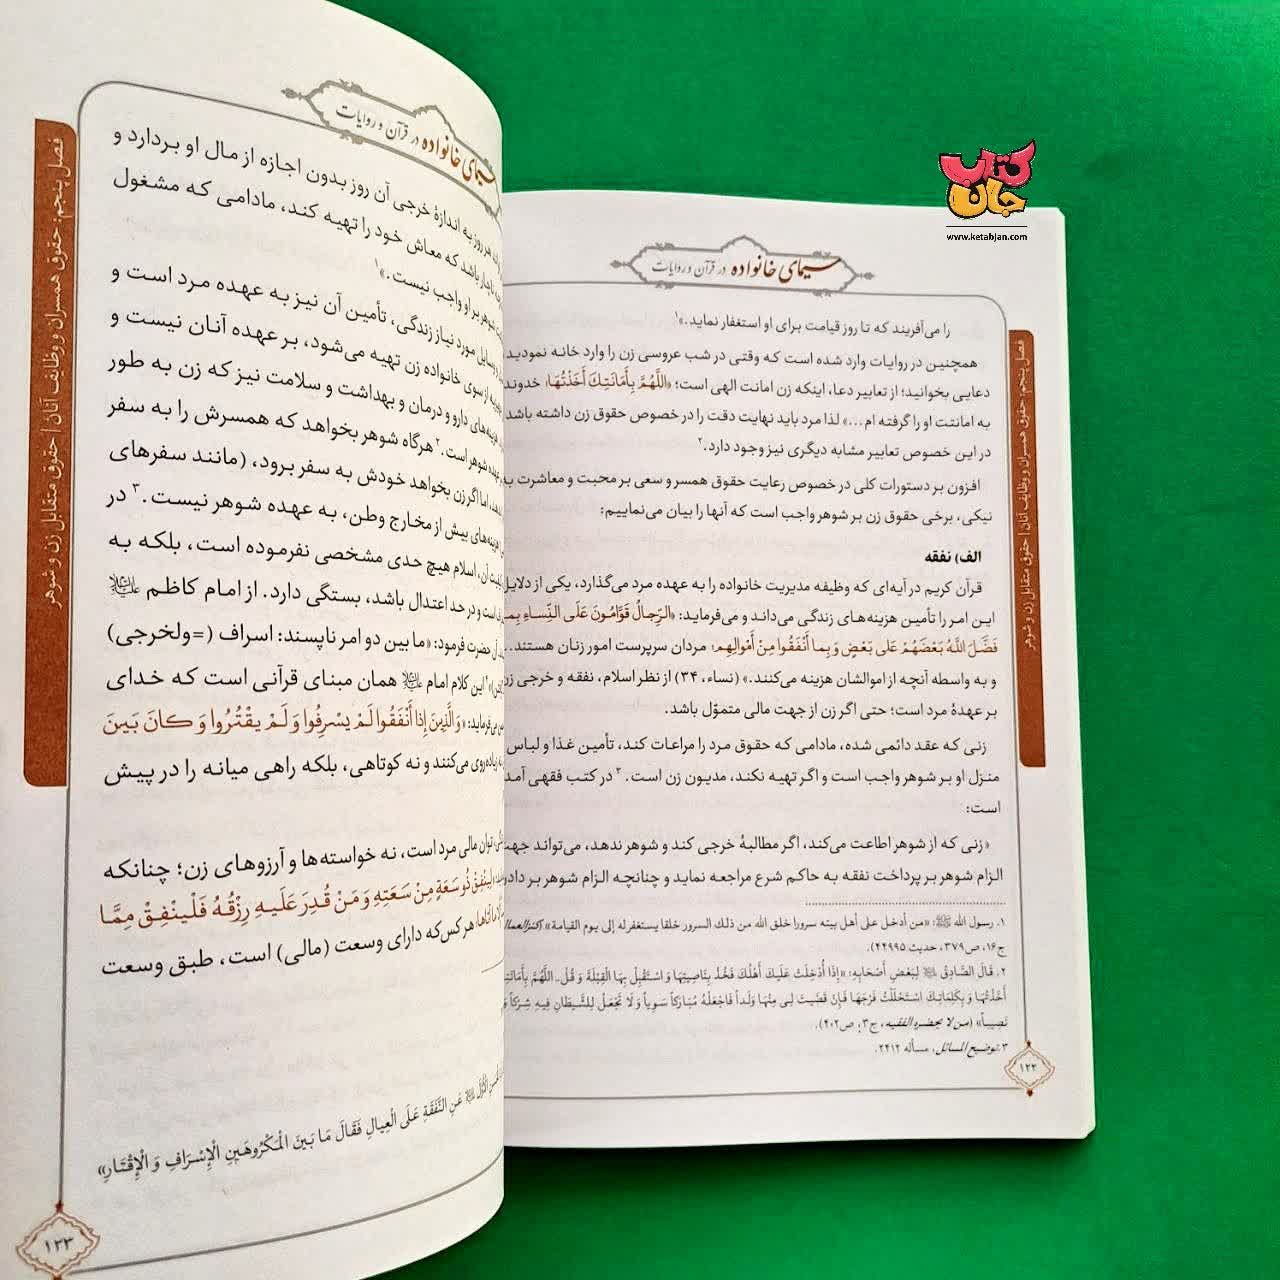 کتاب جان
www.ketabjan.com
سیمای خانواده در قرآن و روایات
فصل پنجم: حقوق همسران و وظایف آنان | حقوق متقابل زن و شوهر
را می‌آفریند که تا روز قیامت برای او استغفار نماید.»۱
همچنین در روایات وارد شده است که وقتی در شب عروسی زن را وارد خانه نمودید
دعایی بخوانید؛ از تعابیر دعا، اینکه زن امانت الهی است؛ «اللَّهُمَّ بِأَمَانَتِكَ أَخَذْتُهَا؛
به امانتت او را گرفته ام...» لذا مرد باید نهایت دقت را در خصوص حقوق زن داشته باشد
در این خصوص تعابیر مشابه دیگری نیز وجود دارد.۲
افزون بر دستورات کلی در خصوص رعایت حقوق همسر و سعی بر محبت و معاشرت به
نیکی، برخی حقوق زن بر شوهر واجب است که آنها را بیان می‌نماییم:
الف) نفقه
قرآن کریم در آیه‌ای که وظیفه مدیریت خانواده را به عهده مرد می‌گذارد، یکی از دلایل
این امر را تأمین هزینه‌های زندگی می‌داند و می‌فرماید: «الرِّجالُ قَوَّامُونَ عَلَى النِّساءِ بِما
فَضَّلَ اللَّهُ بَعْضَهُمْ عَلى بَعْضٍ وَ بِما أَنْفَقُوا مِنْ أَمْوالِهِم؛ مردان سرپرست امور زنان هستند...
و به واسطه آنچه از اموالشان هزینه می‌کنند.» (نساء، ۳۴) از نظر اسلام، نفقه و خرجی
بر عهدهٔ مرد است؛ حتی اگر زن از جهت مالی متموّل باشد.
زنی که عقد دائمی شده، مادامی که حقوق مرد را مراعات کند، تأمین غذا و لباس
منزل او بر شوهر واجب است و اگر تهیه نکند، مدیون زن است. ۳ در کتب فقهی
است:
«زنی که از شوهر اطاعت می‌کند، اگر مطالبهٔ خرجی کند و شوهر ندهد، می‌تواند
الزام شوهر بر پرداخت نفقه به حاکم شرع مراجعه نماید و چنانچه الزام شوهر بر
۱. رسول الله ﷺ: «من أدخل على أهل بيته سرورا خلق الله من ذلك السرور خلقا يستغفر له إلى يوم القيامة»
ج۱۶، ص۳۷۹، حدیث ۴۴۹۹۵).
۲. قَالَ الصَّادِقُ لِبَعْضِ أَصْحَابِهِ: «إِذَا أُدْخِلَتْ عَلَيْكَ أَهْلُكَ فَخُذْ بِنَاصِيَتِهَا وَ اسْتَقْبِلْ بِهَا الْقِبْلَةَ وَ قُلْ‏ اللَّهُمَّ
أَخَذْتُهَا وَ بِكَلِمَاتِكَ اسْتَحْلَلْتُ فَرْجَهَا فَإِنْ قَضَيْتَ لِي مِنْهَا وَلَداً فَاجْعَلْهُ مُبَارَكاً سَوِيّاً وَ لَا تَجْعَلْ لِلشَّيْطَانِ فِيهِ شِرْكاً وَ
نَصِيباً» (من لا یحضره الفقیه، ج۳، ص۴۰۲).
۳. توضیح المسائل، مسأله ۲۴۱۲.
۱۲۲
سیمای خانواده در قرآن و روایات
فصل پنجم: حقوق همسران و وظایف آنان | حقوق متقابل زن و شوهر
هر روز به اندازهٔ خرجی آن روز بدون اجازه از مال او بردارد و
ناچار باشد که معاش خود را تهیه کند، مادامی که مشغول
شوهر بر او واجب نیست.»۱
مورد نیاز زندگی، تأمین آن نیز به عهده مرد است و
از سوی خانواده زن تهیه می‌شود، بر عهده آنان نیست و
هزینه‌های دارو و درمان و بهداشت و سلامت نیز که زن به طور
عهده شوهر است.۲ هرگاه شوهر بخواهد که همسرش را به سفر
اما اگر زن بخواهد خودش به سفر برود، (مانند سفرهای
هزینه‌های بیش از مخارج وطن، به عهده شوهر نیست.۳ در
آن، اسلام هیچ حدی مشخصی نفرموده است، بلکه به
است و در حد اعتدال باشد، بستگی دارد. از امام کاظم
آن حضرت فرمود: «ما بین دو امر ناپسند: اسراف (=ولخرجی)
این کلام امام همان مبنای قرآنی است که خدای
می‌فرماید: «وَالَّذِينَ إِذا أَنْفَقُوا لَمْ يُسْرِفُوا وَ لَمْ يَقْتُرُوا وَ كانَ بَيْنَ
زیاده‌روی می‌کنند و نه کوتاهی، بلکه راهی میانه را در پیش
توان مالی مرد است، نه خواسته‌ها و آرزوهای زن؛ چنانکه
لِيُنْفِقْ ذُو سَعَةٍ مِنْ سَعَتِهِ وَ مَنْ قُدِرَ عَلَيْهِ رِزْقُهُ فَلْيُنْفِقْ مِمَّا
هر کس که دارای وسعت (مالی) است، طبق وسعت
عَنِ النَّفَقَةِ عَلَى الْعِيَالِ فَقَالَ مَا بَيْنَ الْمَكْرُوهَيْنِ الْإِسْرَافِ وَ الْإِقْتَارِ»
۱۲۳